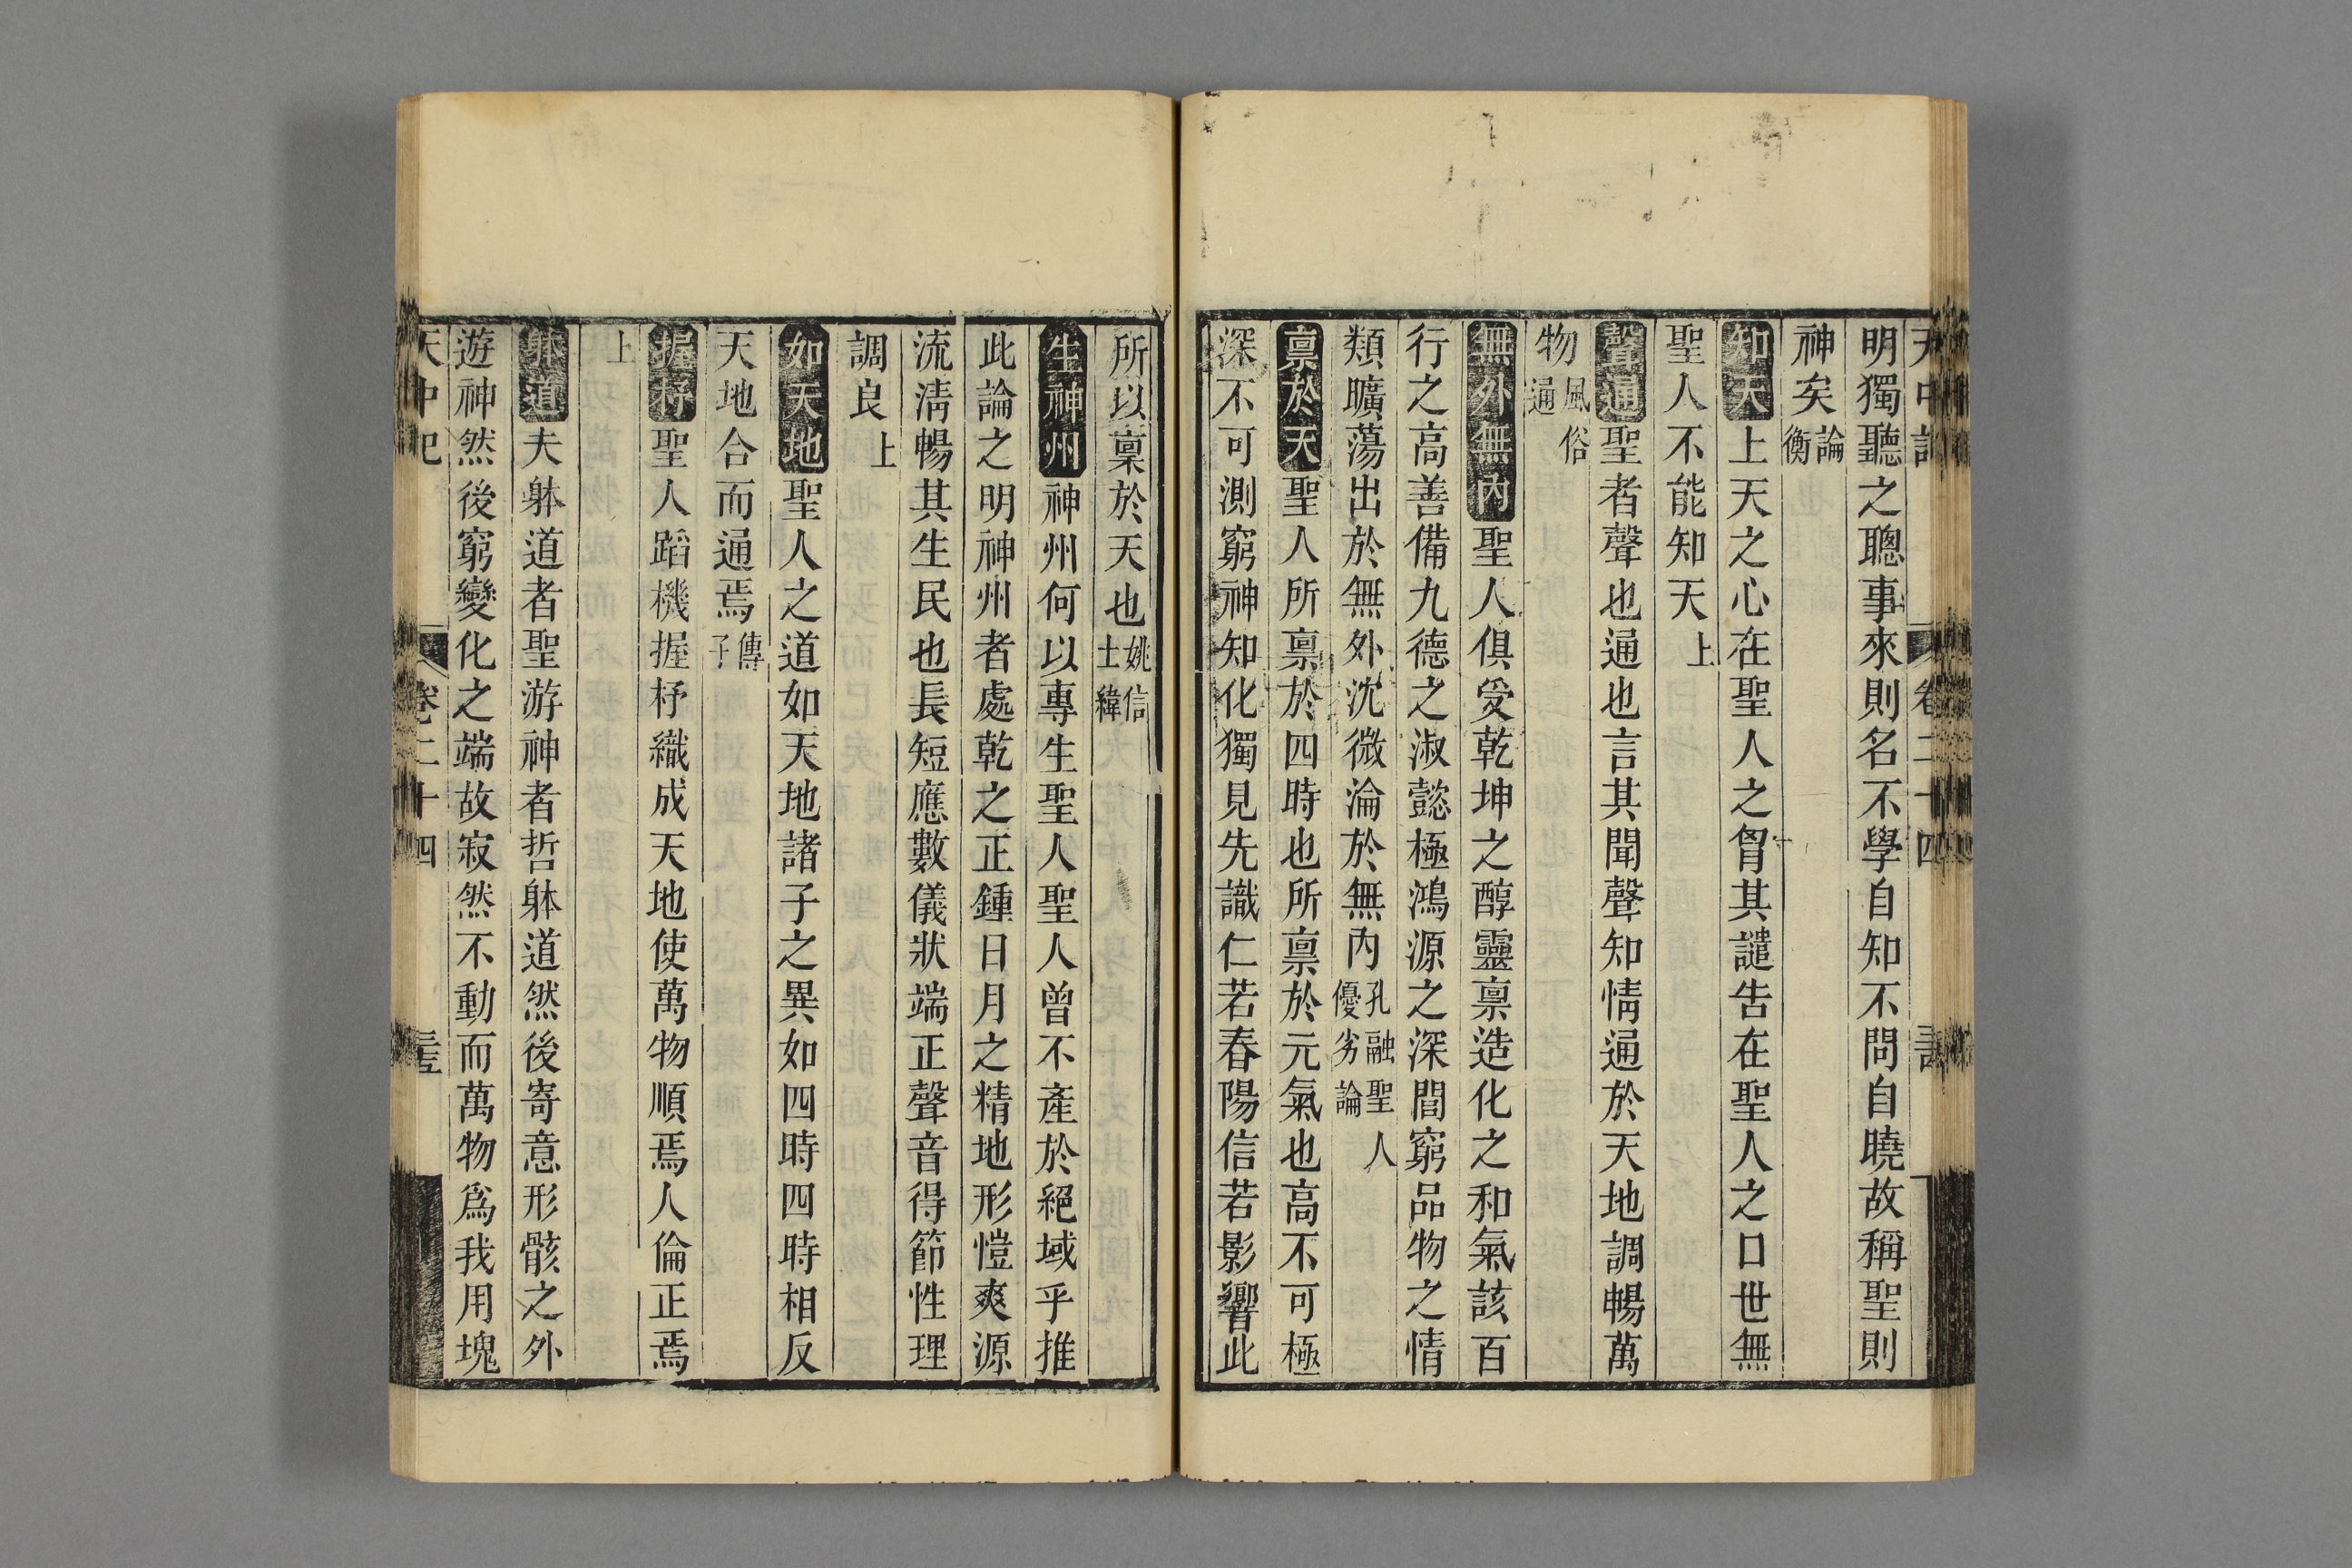 明獨聽之聰事來則名不學自知不問自曉故稱聖則
神矣論衡
知天上天之心在聖人之胷其譴告在聖人之口世無
聖人不能知天上
聲通聖者聲也通也言其聞聲知情通於天地調暢萬
物風俗通
無外無內聖人俱受乾坤之醇靈禀造化之和氣該百
行之高善備九德之淑懿極鴻源之深閭窮品物之情
類曠蕩出於無外沈微淪於無內孔融聖人優劣論
禀於天聖人所禀於四時也所禀於元氣也高不可極
深不可測窮神知化獨見先識仁若春陽信若影響此
所以禀於天也姚信士緯
生神州神州何以專生聖人聖人曾不產於絕域乎推
此論之明神州者處乾之正鍾日月之精地形愷爽源
流淸暢其生民也長短應數儀狀端正聲音得節性理
調良上
如天地聖人之道如天地諸子之異如四時四時相反
天地合而通焉傅子
握杼聖人蹈機握杼織成天地使萬物順焉人倫正焉
上
躰道夫躰道者聖游神者哲躰道然後寄意形骸之外
遊神然後窮變化之端故寂然不動而萬物爲我用塊
天中記 卷二十四